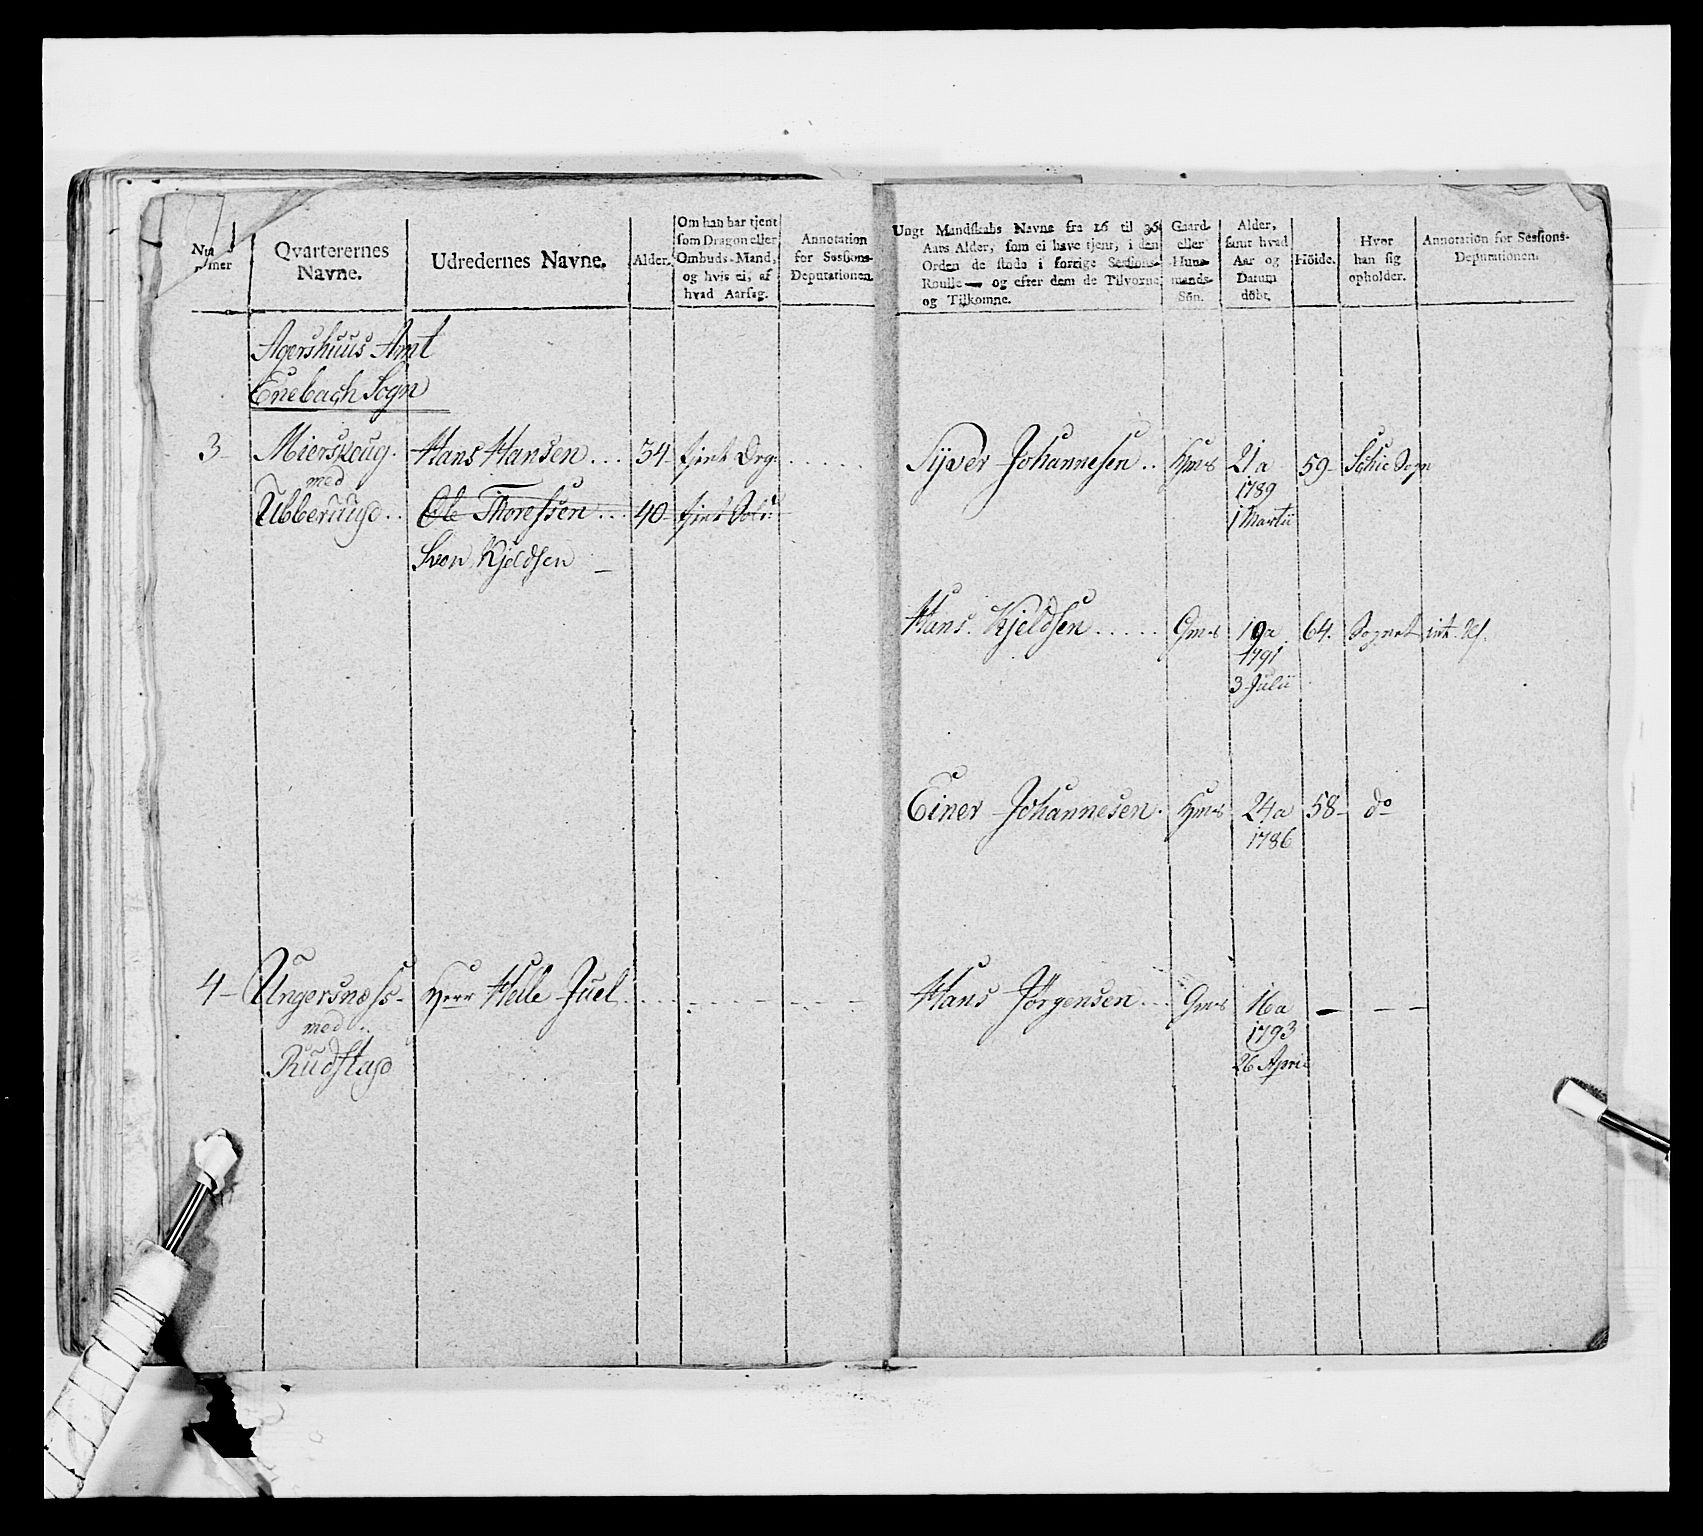 Nummer
Qvarterernes Navne.
Udredernes Navne.
Alder.
Om han har tjent
som Dragon eller
Ombuds-Mand,
og hvis ei, af
hvad Aarsag.
Annotation
for Sessions-
Deputationen.
Ungt Mandskabs Navne fra 16 til 36
Aars Alder, som ei have tjent, i den
Orden de stode i forrige Sessions-
Roulle — og efter dem de Tilvoxne
og Tilkomne.
Gaard-
eller
Huus-
mands-
Sön.
Alder,
samt hvad
Aar og
Datum
döbt.
Höide.
Hvor
han sig
opholder.
Annotation for Sessions-
Deputationen.
Agershuus Amt
Enebach Sogn
3 - Mierskoug. Hans Hansen . . . 54 - tjent Drg: . . . . .
med
Ubberaugd . . Ole Thoressen . . . 40 - tjent Sold:
Sven Kjeldsen -
Syver Johannesen . . Hms 21 a 59 - Schie Sogn
1789
1 Martii
Hans Kjeldsen . . . . . Gms 19 a 64. Sognet
1791
3 Julii
Einer Johannesen . Hms 24 a 58 - do
1786
4 - Ungersnæss - Herr Helle Juel
med
Rudstad
Hans Jörgensen . . . Gms 16 a - - -
1793
26 April